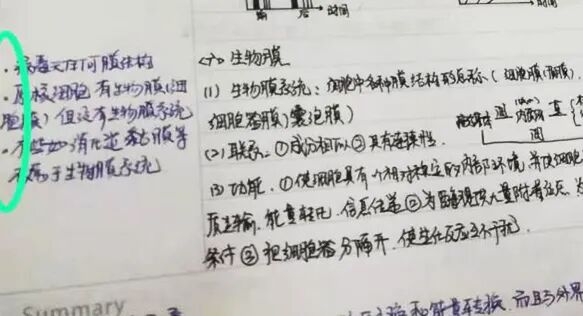 前 后 时间
时间
·病毒无任何膜结构
·原核细胞有生物膜(细
胞膜)但没有生物膜系统
·不是如消化道黏膜等
不属于生物膜系统
<六> 生物膜
(1) 生物膜系统:细胞中各种膜结构形成称(细胞膜、核膜、
细胞器膜)囊泡膜)
(2) 联系:①成分相似②具有连续性.
(3) 功能.①使细胞具有个相对稳定的内部环境,并使细胞
质运输.能量转化.信息传递②为酶提供大量附着位点,为
条件③把细胞器分隔开,使生化反应互不干扰.
间
Summary
和能量转换,而且与外界